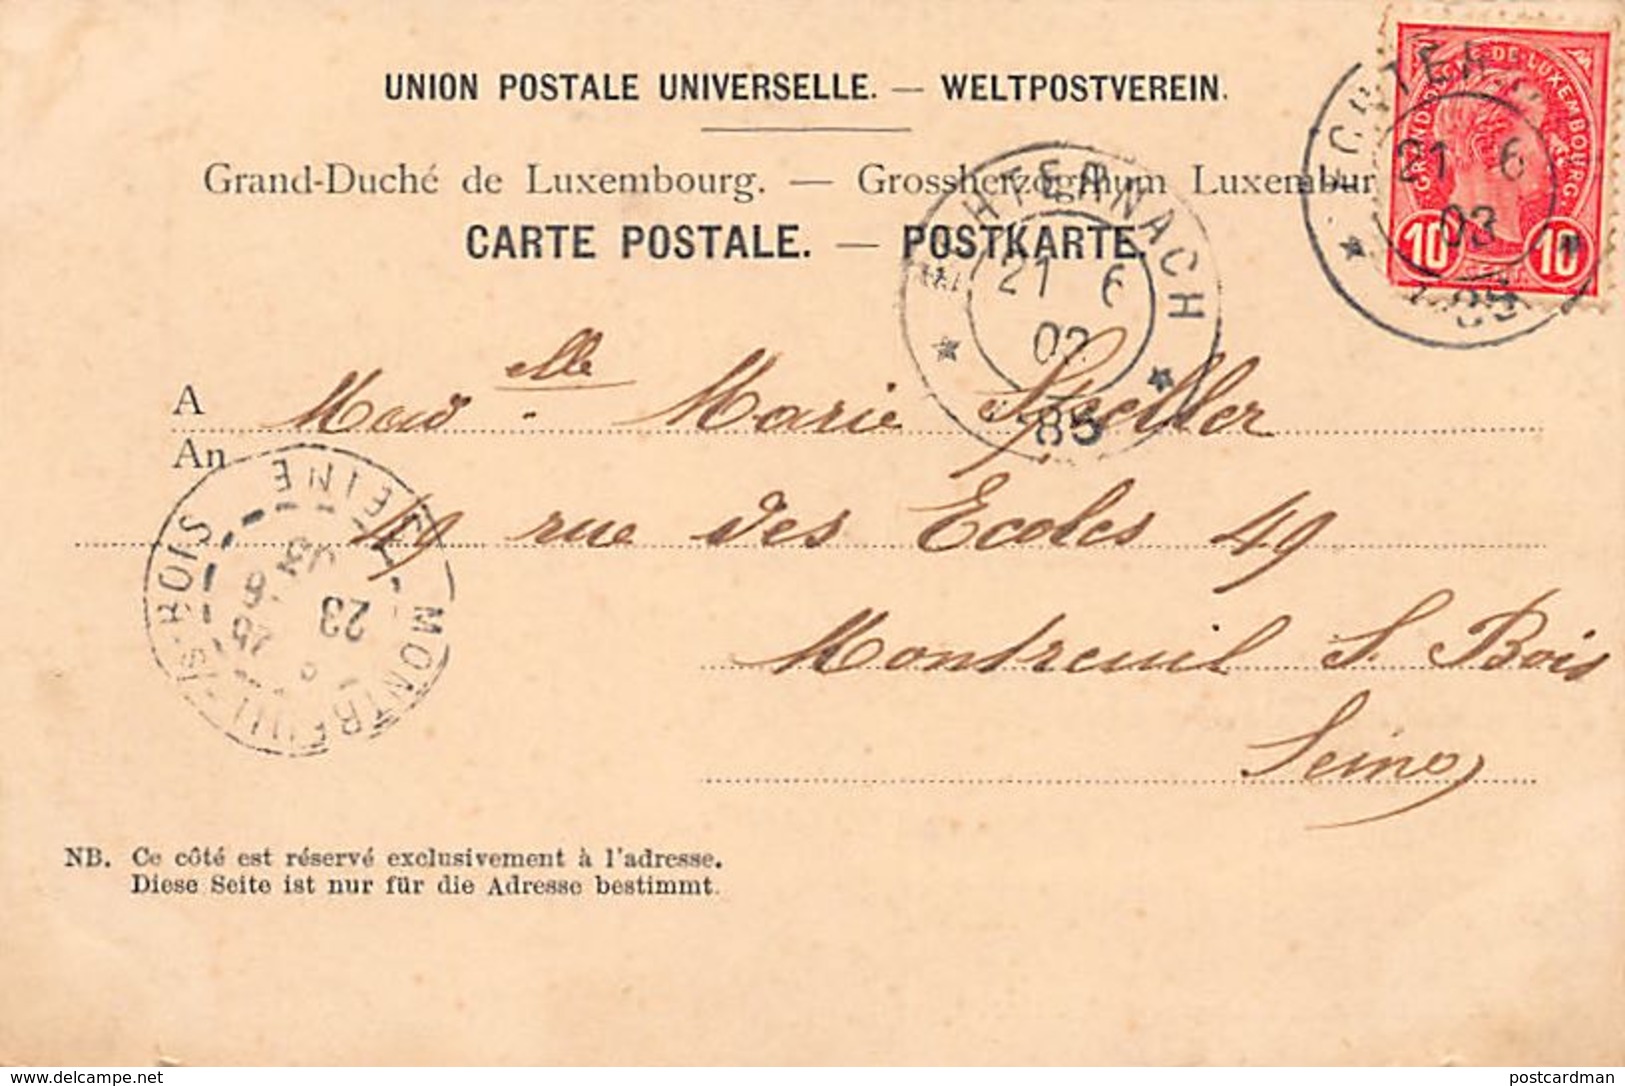 UNION POSTALE UNIVERSELLE. — WELTPOSTVEREIN.
Grand-Duché de Luxembourg. — Grossherzogthum Luxembur
CARTE POSTALE. — POSTKARTE.
GRAND DUCHE-DE-LUXEMBOURG
10 10
ECHTERNACH
21 6
03
85
ECHTERNACH
21 6
03
85
A Mad elle Marie
An
49 rue des Ecoles 49
Montreuil S. Bois
Seine
MONTREUIL-S-BOIS SEINE
23
NB. Ce côté est réservé exclusivement à l'adresse.
Diese Seite ist nur für die Adresse bestimmt.
www.delcampe.net
postcardman